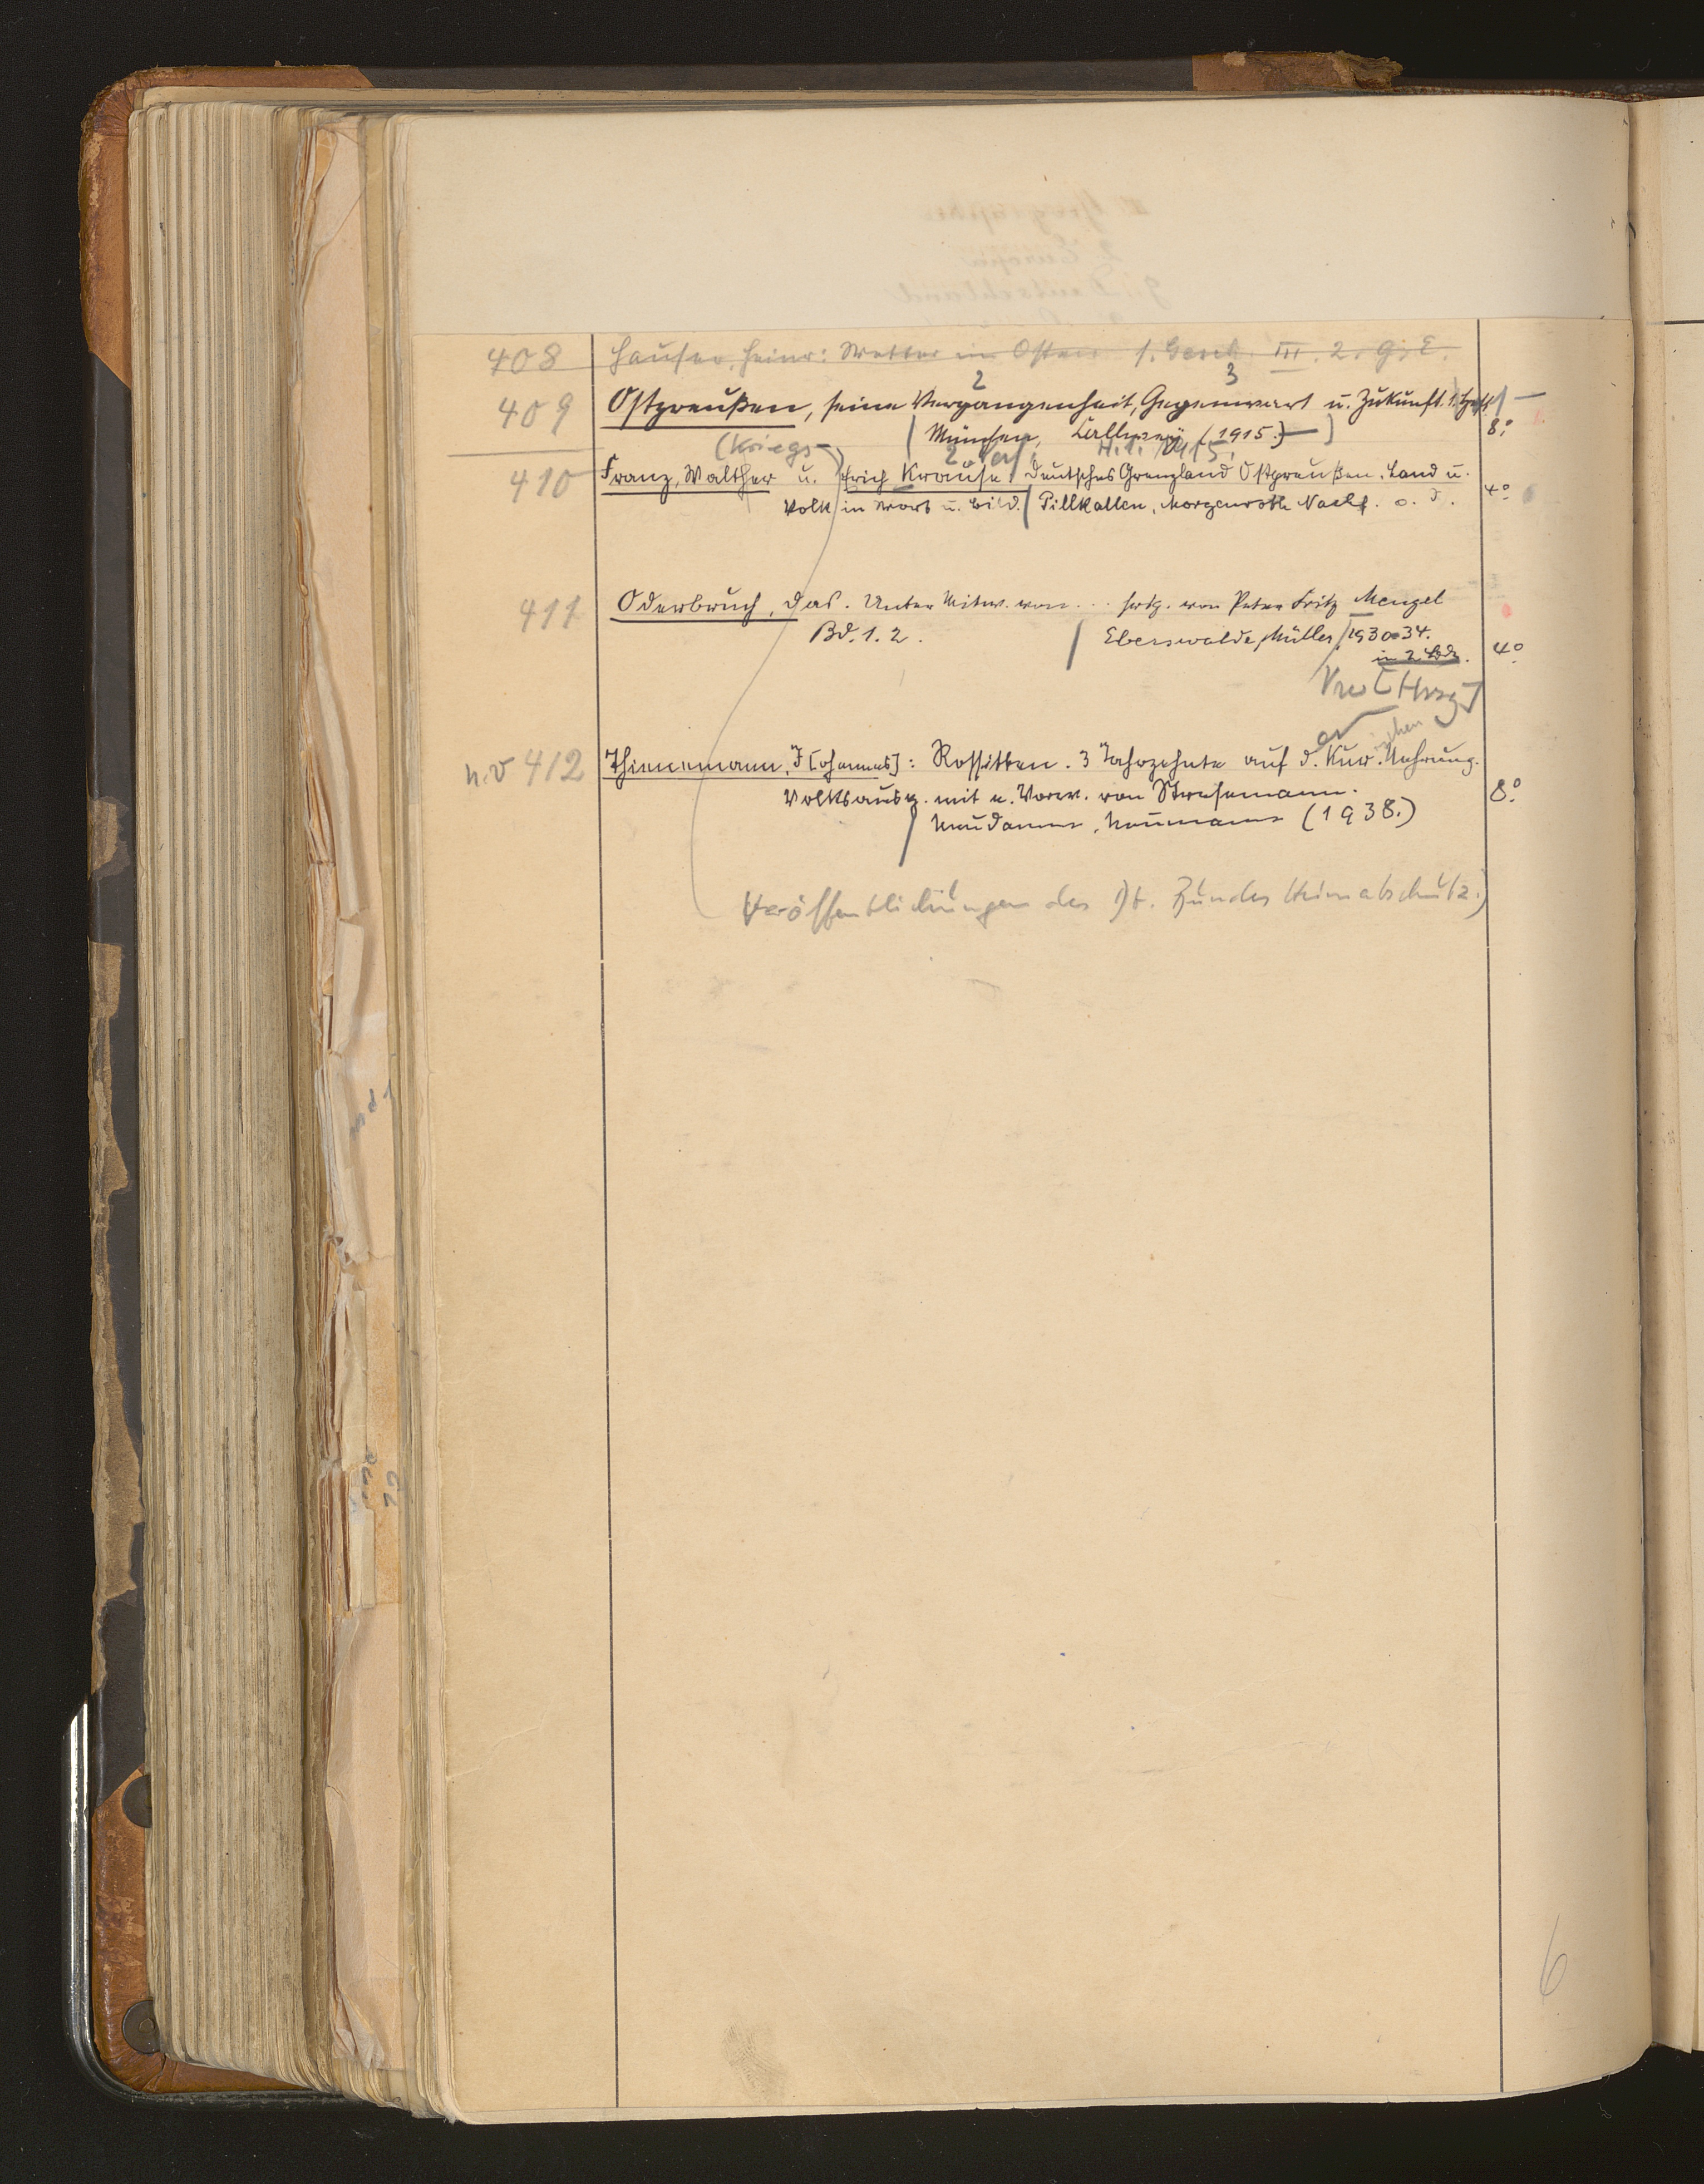 408 Hauser, Heinr: Wetter im Osten s. Gesch. III. 2. G; E.
2 3
409 Ostpreußen, seine Vergangenheit, Gegenwart u. Zukunft. 1. Heft
München, Callwey (1915.) 8°
(Kriegs- 2. Verf. H. 1. 1915.
410 Franz, Walther u. Erich Krause, Deutsches Grenzland Ostpreußen. Land u.
Volk in Wort u. Bild. Pillkallen, Morgenroth Nachf. o. J. 4°
411 Oderbruch, das. Unter Mitw. von ... hrsg. von Peter Fritz Mengel
Bd. 1. 2. Eberswalde, Müller, 1930-34.
in 2 Bdn. 4°
Vw [Hrsg]
er schen
n. v 412 Thienemann, J[ohannes]: Rossitten. 3 Jahrzehnte auf d. Kur. Nehrung.
Volksausg. mit e. Vorw. von Stresemann. 8°
Neudamm, Neumann (1938.)
Veröffentlichungen des Dt. Bundes Heimatschutz.)
6